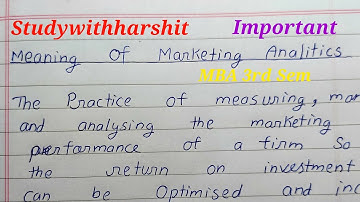 Studywithharshit Important
Meaning Of Marketing Analitics
MBA 3rd Sem
The Practice of measuring,
and analysing the marketing
performance of a firm So
the return on investment
can be Optimised and